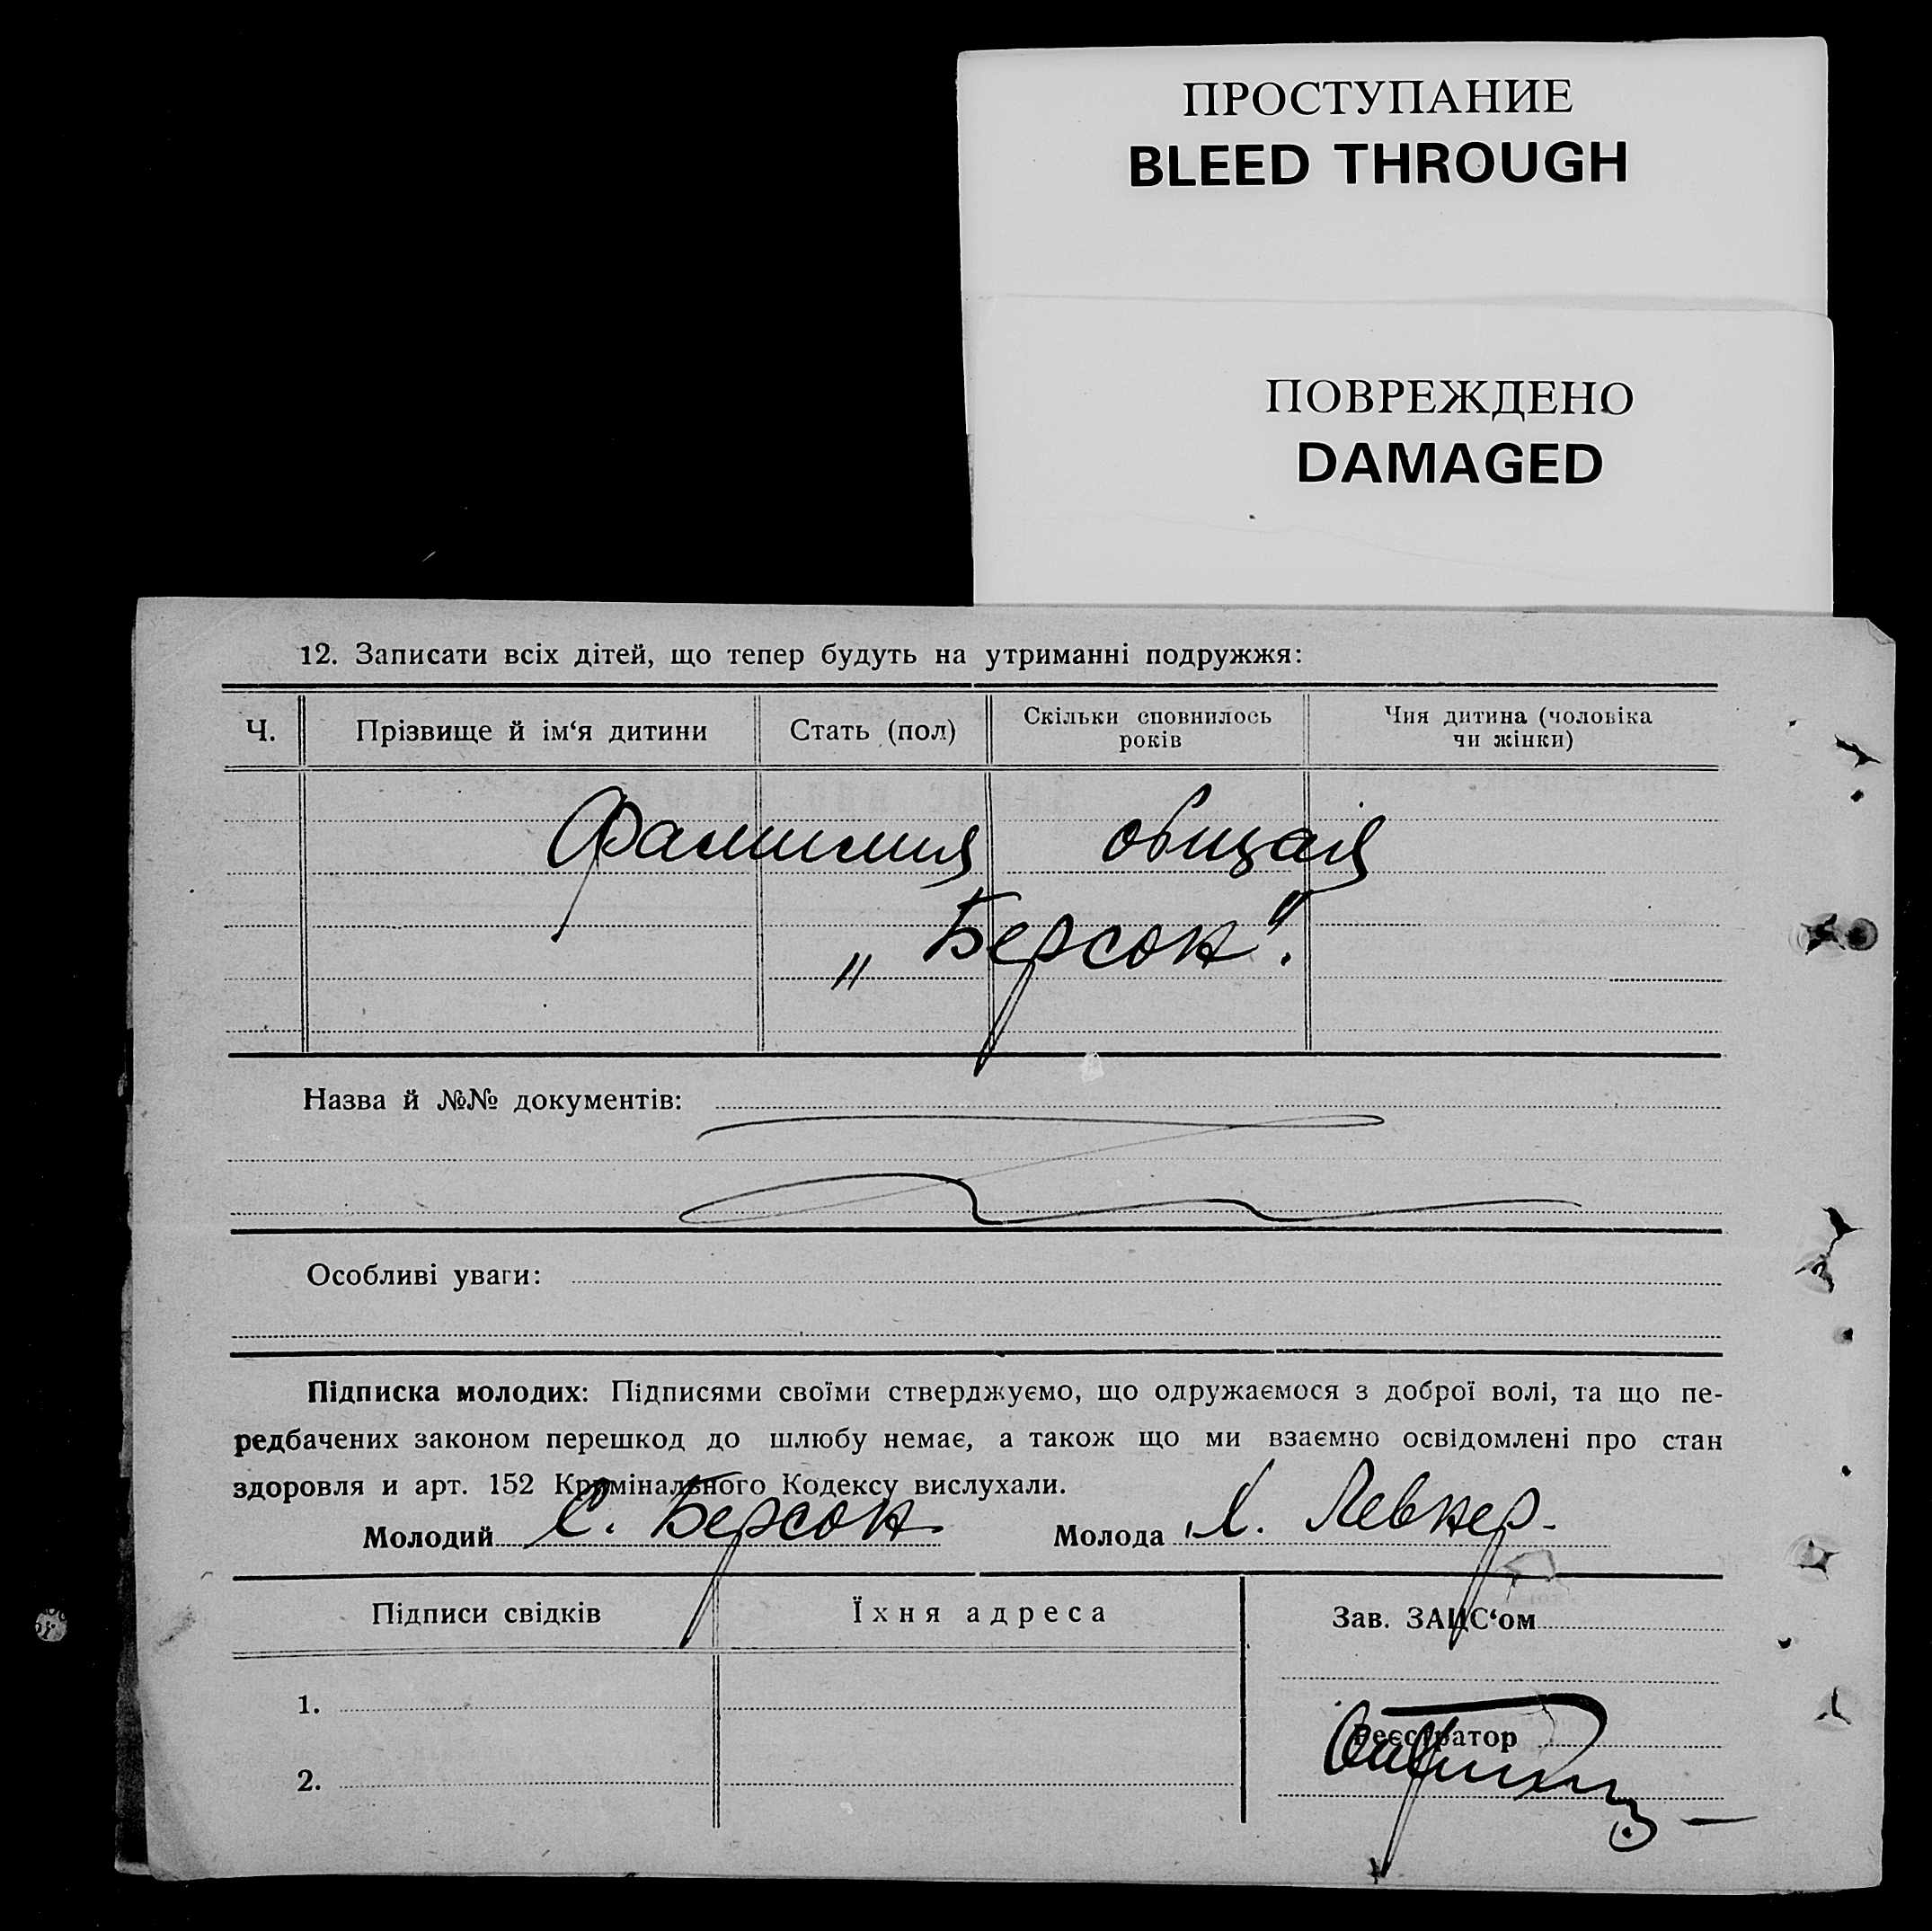 ПРОСТУПАНИЕ
BLEED THROUGH
ПОВРЕЖДЕНО
DAMAGED
12. Записати всіх дітей, що тепер будуть на утриманні подружжя:
Ч.
Прізвище й ім‘я дитини
Стать (пол)
Скільки сповнилось
років
Чия дитина (чоловіка
чи жінки)
Фамилия общая
„Берсон".
Назва й №№ документів:
Особливі уваги:
Підписка молодих: Підписями своїми стверджуємо, що одружаємося з доброї волі, та що пе-
редбачених законом перешкод до шлюбу немає, а також що ми взаємно освідомлені про стан
здоровля и арт. 152 Кримінального Кодексу вислухали.
Молодий С. Берсон Молода Левнер
Підписи свідків
Їхня адреса
Зав. ЗАЦС‘ом
1.
Реєстратор
2.